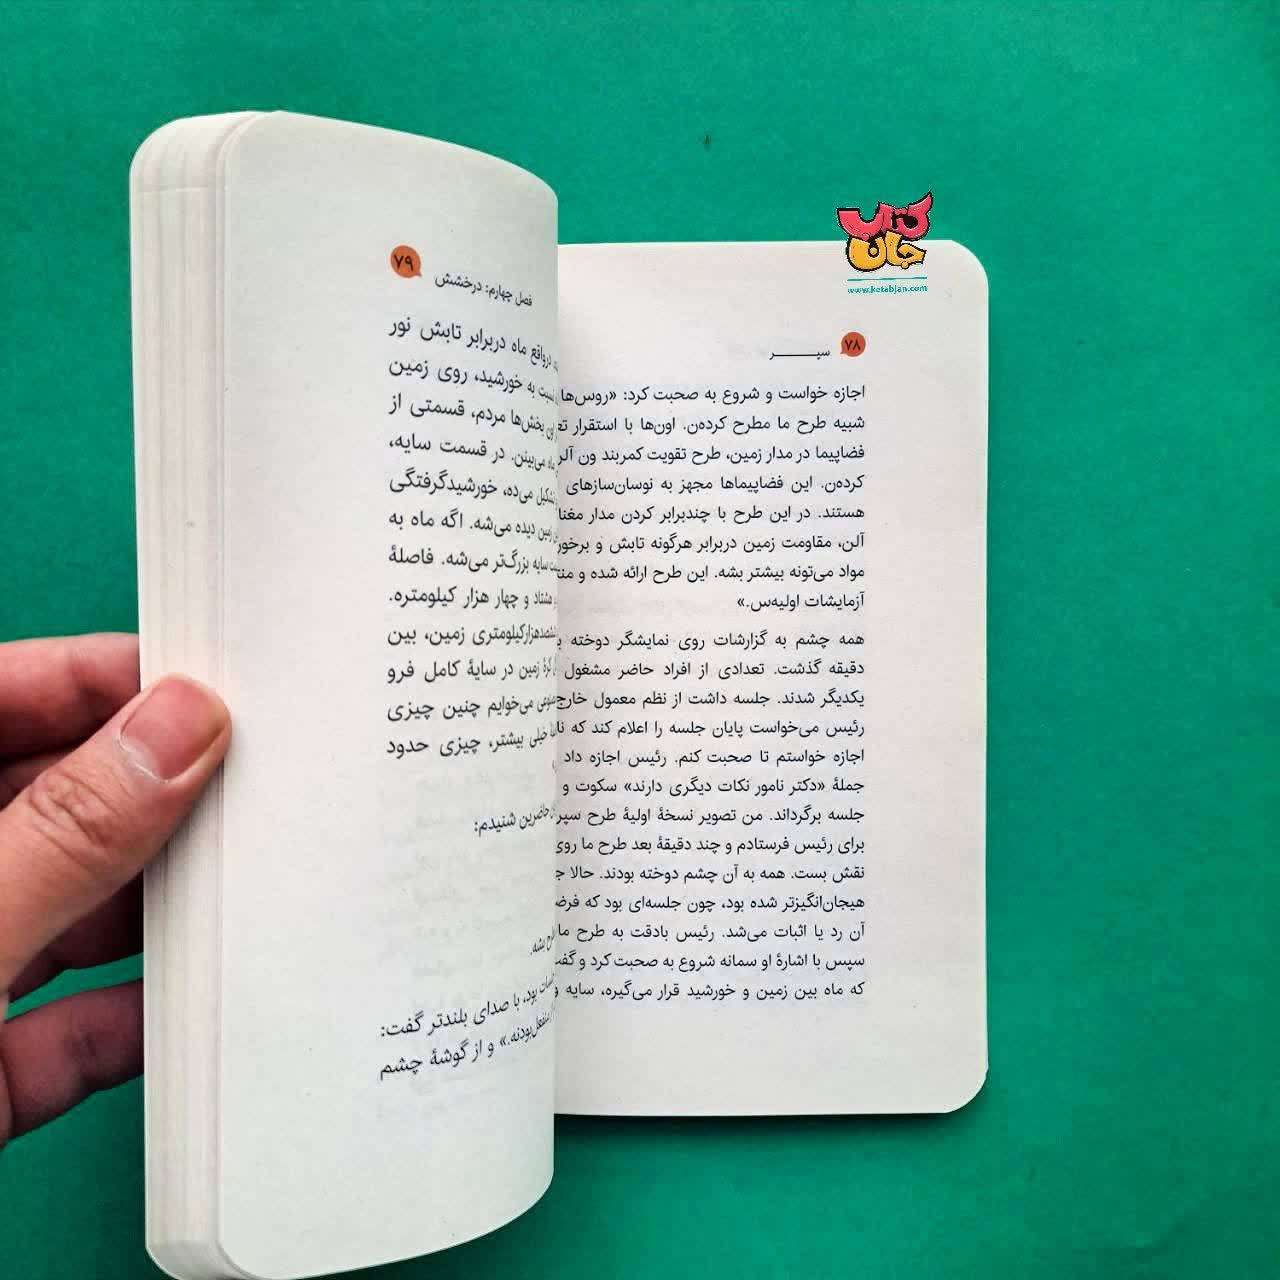 کتاب
جان
www.ketabjan.com
۷۸
سپر
اجازه خواست و شروع به صحبت کرد: «روس‌ها
شبیه طرح ما مطرح کرده‌ن. اون‌ها با استقرار
فضاپیما در مدار زمین، طرح تقویت کمربند ون
کرده‌ن. این فضاپیماها مجهز به نوسان‌سازهای
هستند. در این طرح با چندبرابر کردن مدار
آلن، مقاومت زمین دربرابر هرگونه تابش و
مواد می‌تونه بیشتر بشه. این طرح ارائه شده و
آزمایشات اولیه‌س.»
همه چشم به گزارشات روی نمایشگر دوخته
دقیقه گذشت. تعدادی از افراد حاضر مشغول
یکدیگر شدند. جلسه داشت از نظم معمول خارج
رئیس می‌خواست پایان جلسه را اعلام کند که
اجازه خواستم تا صحبت کنم. رئیس اجازه داد
جملهٔ «دکتر نامور نکات دیگری دارند» سکوت و
جلسه برگرداند. من تصویر نسخهٔ اولیهٔ طرح سپر
برای رئیس فرستادم و چند دقیقهٔ بعد طرح ما روی
نقش بست. همه به آن چشم دوخته بودند. حالا
هیجان‌انگیزتر شده بود، چون جلسه‌ای بود که
آن رد یا اثبات می‌شد. رئیس بادقت به طرح ما
سپس با اشارهٔ او سمانه شروع به صحبت کرد و
که ماه بین زمین و خورشید قرار می‌گیره، سایه
فصل چهارم: درخشش
۷۹
درواقع ماه دربرابر تابش نور
نسبت به خورشید، روی زمین
اون بخش‌ها مردم، قسمتی از
ماه می‌بینن. در قسمت سایه،
تشکیل می‌ده، خورشیدگرفتگی
زمین دیده می‌شه. اگه ماه به
سایه بزرگ‌تر می‌شه. فاصلهٔ
هشتاد و چهار هزار کیلومتره.
زمین، بین
کرهٔ زمین در سایهٔ کامل فرو
می‌خوایم چنین چیزی
خیلی بیشتر، چیزی حدود
حاضرین شنیدم:
بشه.
بود، با صدای بلندتر گفت:
و از گوشهٔ چشم